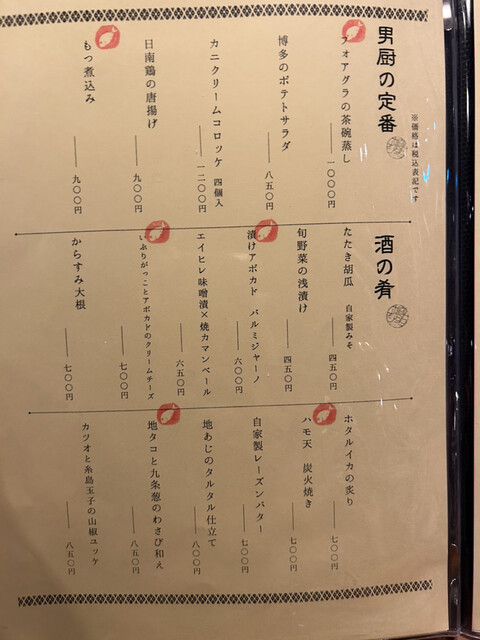 ※価格は税込表記です
男厨の定番
フォアグラの茶碗蒸し 一〇〇〇円
博多のポテトサラダ 八五〇円
カニクリームコロッケ 四個入 一二〇〇円
日南鶏の唐揚げ 九〇〇円
もつ煮込み 九〇〇円
酒の肴
たたき胡瓜 自家製みそ 四五〇円
旬野菜の浅漬け 四五〇円
漬けアボカド パルミジャーノ 六〇〇円
エイヒレ味噌漬×焼カマンベール 六五〇円
いぶりがっことアボカドのクリームチーズ 七〇〇円
からすみ大根 七〇〇円
ホタルイカの炙り 七〇〇円
ハモ天 炭火焼き 七〇〇円
自家製レーズンバター 七〇〇円
地あじのタルタル仕立て 八〇〇円
地タコと九条葱のわさび和え 八五〇円
カツオと糸島玉子の山椒ユッケ 八五〇円